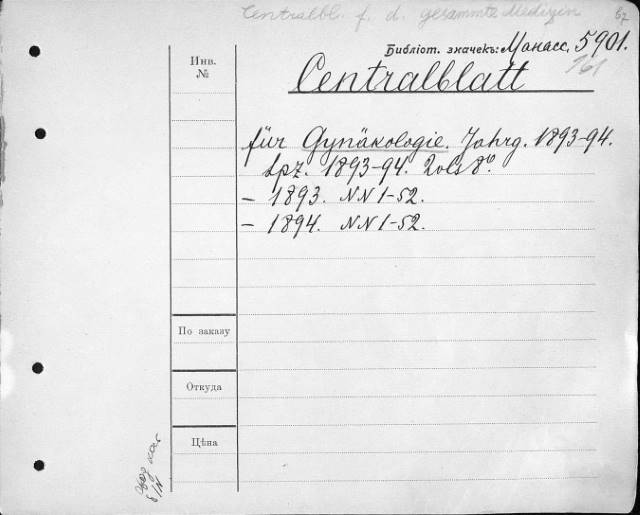 Centralbl. f. d. gesammte Medizin
62
Библіот. значекъ: Манасс. 5901.
161
Инв.
№
Centralblatt
für Gynäkologie. Jahrg. 1893-94.
Lpz. 1893-94. 2 vols 8º.
— 1893. NN 1-52.
— 1894. NN 1-52.
По заказу
Откуда
Цѣна